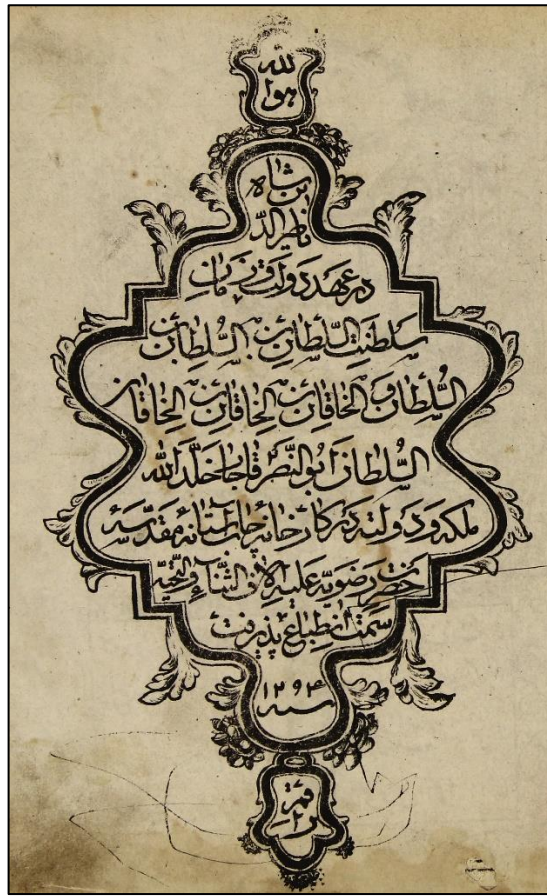 هو الله
شاه
ین
ناصرالد
در عهد دولت و زمان
سلطنت السّلطان بن السّلطان بن
السّلطان و الخاقان بن الخاقان بن الخاقان
السّلطان ابوالنّصر قاجار خلّد الله
ملکه و دولته در کارخانه چاپ آستانه مقدّسه
حضرت رضویّه علیه الاف الثّناء و التّحیّه
سمت انطباع پذیرفت
سنه ۱۲۹۴